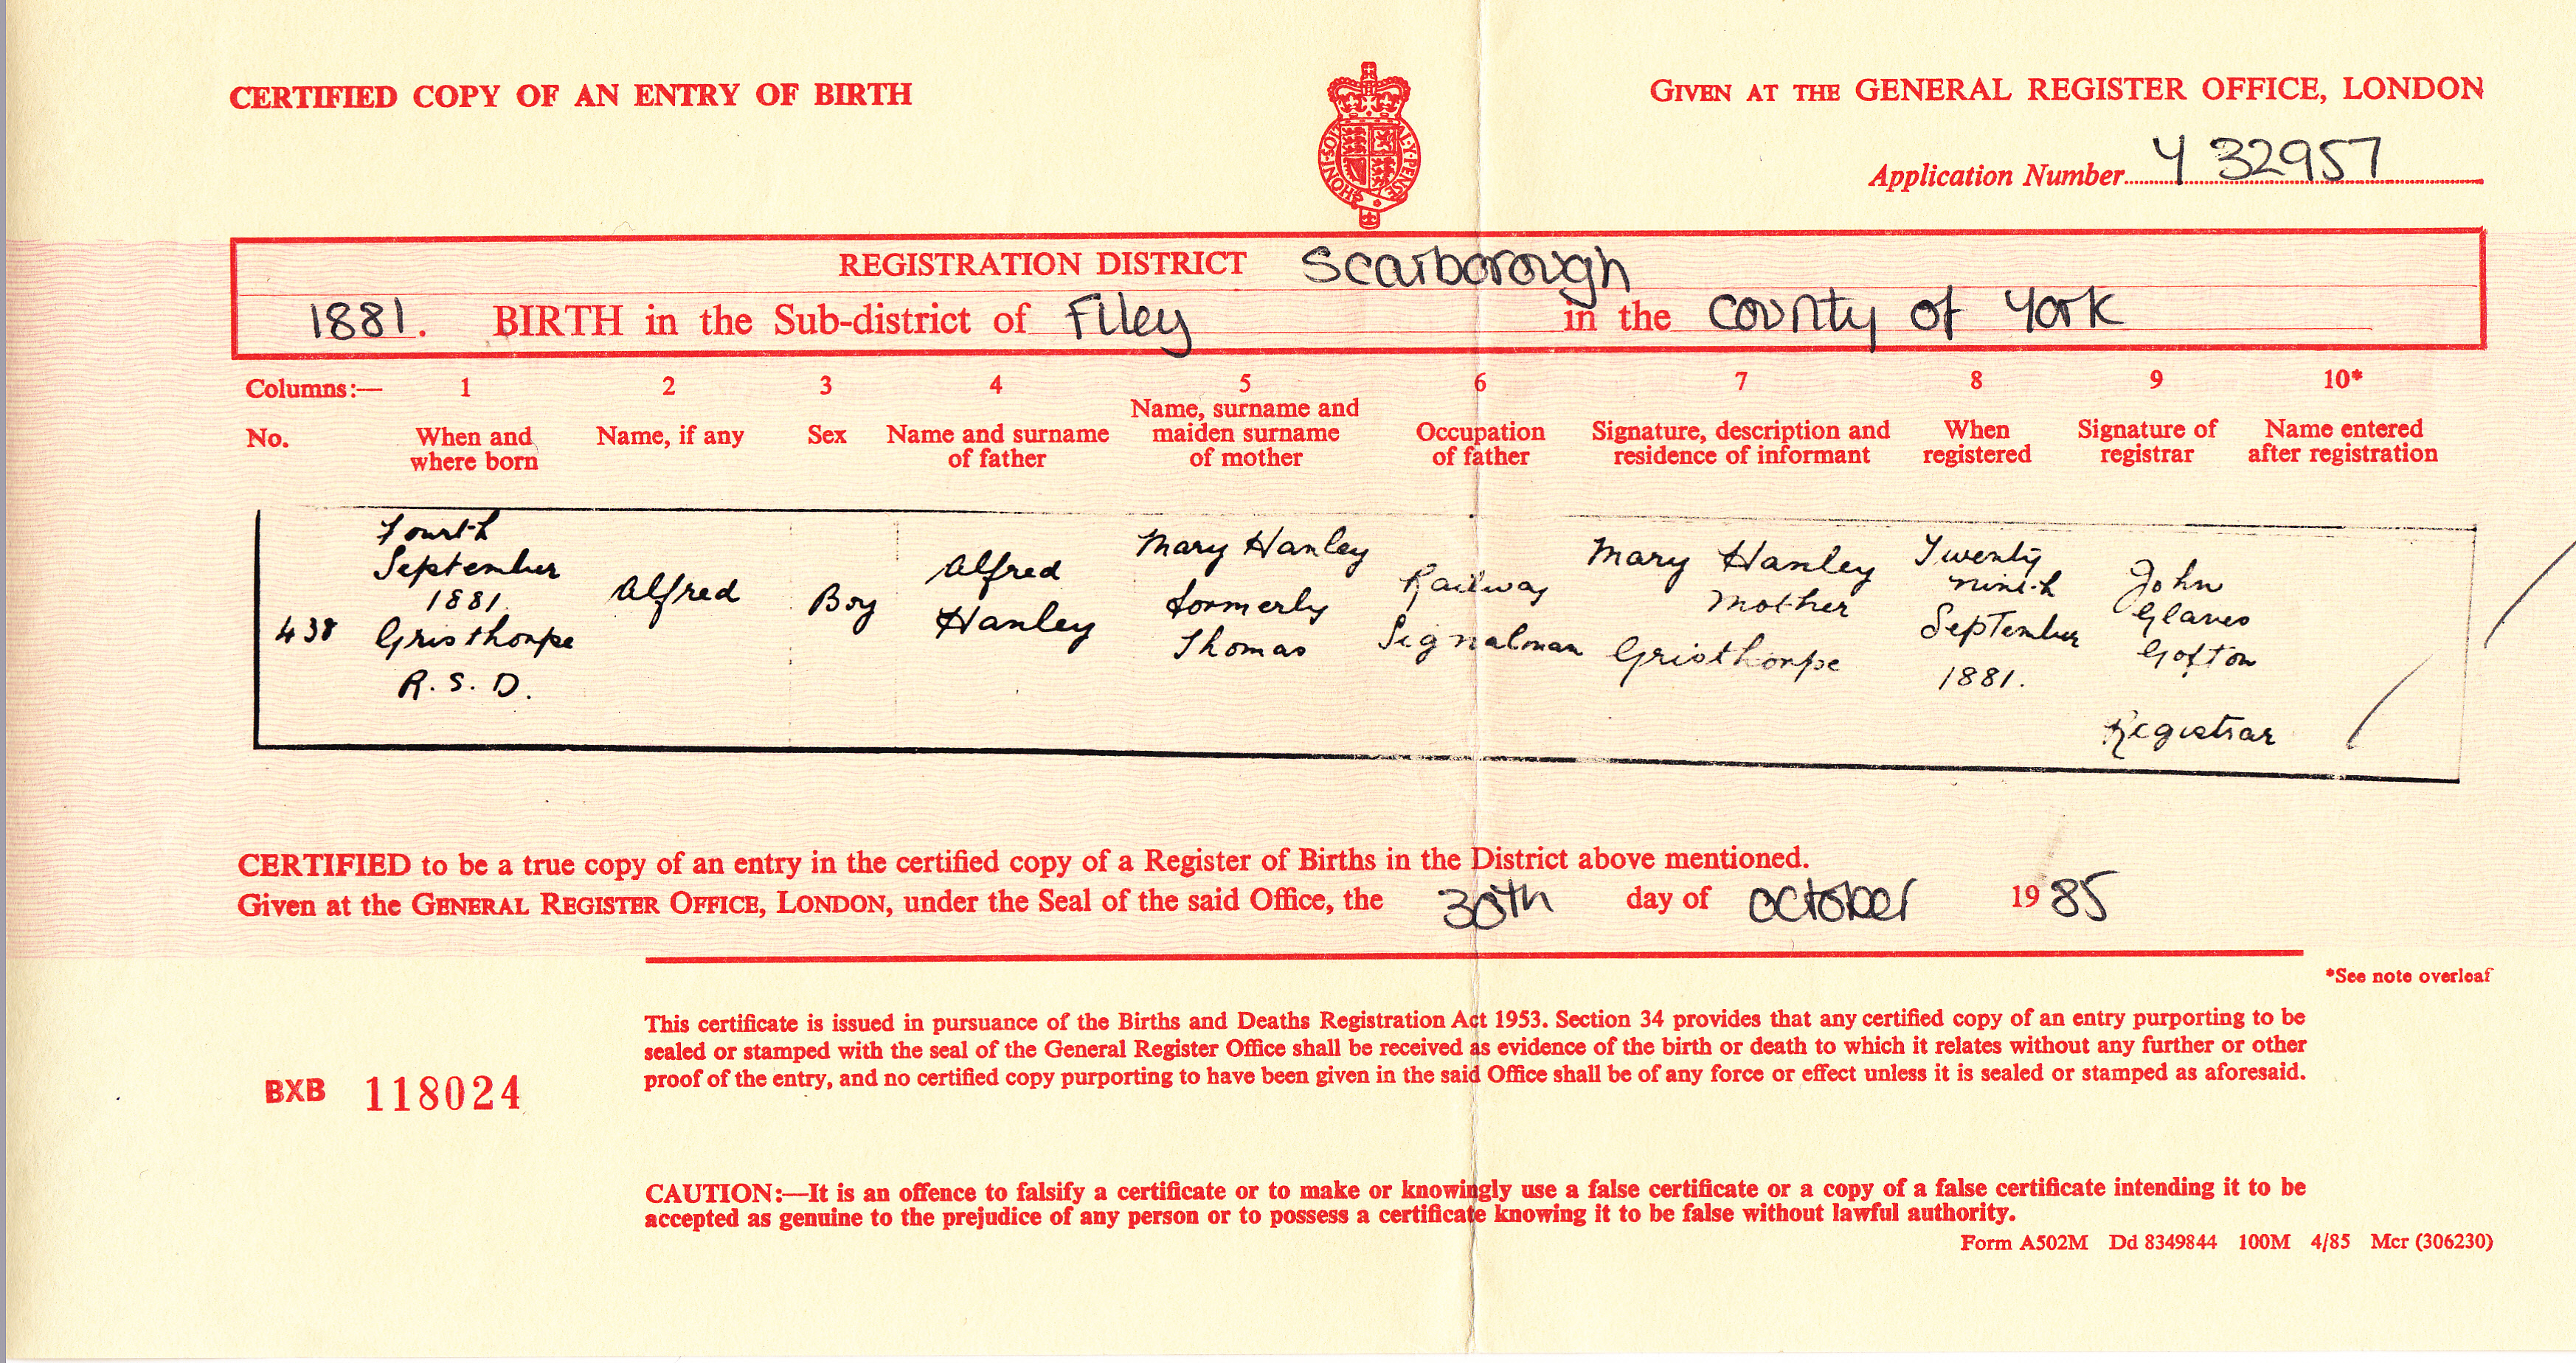 CERTIFIED COPY OF AN ENTRY OF BIRTH
GIVEN AT THE GENERAL REGISTER OFFICE, LONDON
HONI · SOIT · Q · MAL · Y · PENSE
Application Number Y 32957
REGISTRATION DISTRICT Scarborough
1881. BIRTH in the Sub-district of Filey in the County of York
Columns:— 1 2 3 4 5 6 7 8 9 10*
No.
When and
where born
Name, if any
Sex
Name and surname
of father
Name, surname and
maiden surname
of mother
Occupation
of father
Signature, description and
residence of informant
When
registered
Signature of
registrar
Name entered
after registration
438
Fourth
September
1881.
Gristhorpe
R. S. D.
Alfred
Boy
Alfred
Hanley
Mary Hanley
formerly
Thomas
Railway
Signalman
Mary Hanley
Mother
Gristhorpe
Twenty
ninth
September
1881.
John
Glaves
Gofton
Registrar
CERTIFIED to be a true copy of an entry in the certified copy of a Register of Births in the District above mentioned.
Given at the GENERAL REGISTER OFFICE, LONDON, under the Seal of the said Office, the 30th day of October 1985
*See note overleaf
This certificate is issued in pursuance of the Births and Deaths Registration Act 1953. Section 34 provides that any certified copy of an entry purporting to be
sealed or stamped with the seal of the General Register Office shall be received as evidence of the birth or death to which it relates without any further or other
proof of the entry, and no certified copy purporting to have been given in the said Office shall be of any force or effect unless it is sealed or stamped as aforesaid.
BXB 118024
CAUTION:—It is an offence to falsify a certificate or to make or knowingly use a false certificate or a copy of a false certificate intending it to be
accepted as genuine to the prejudice of any person or to possess a certificate knowing it to be false without lawful authority.
Form A502M Dd 8349844 100M 4/85 Mcr (306230)